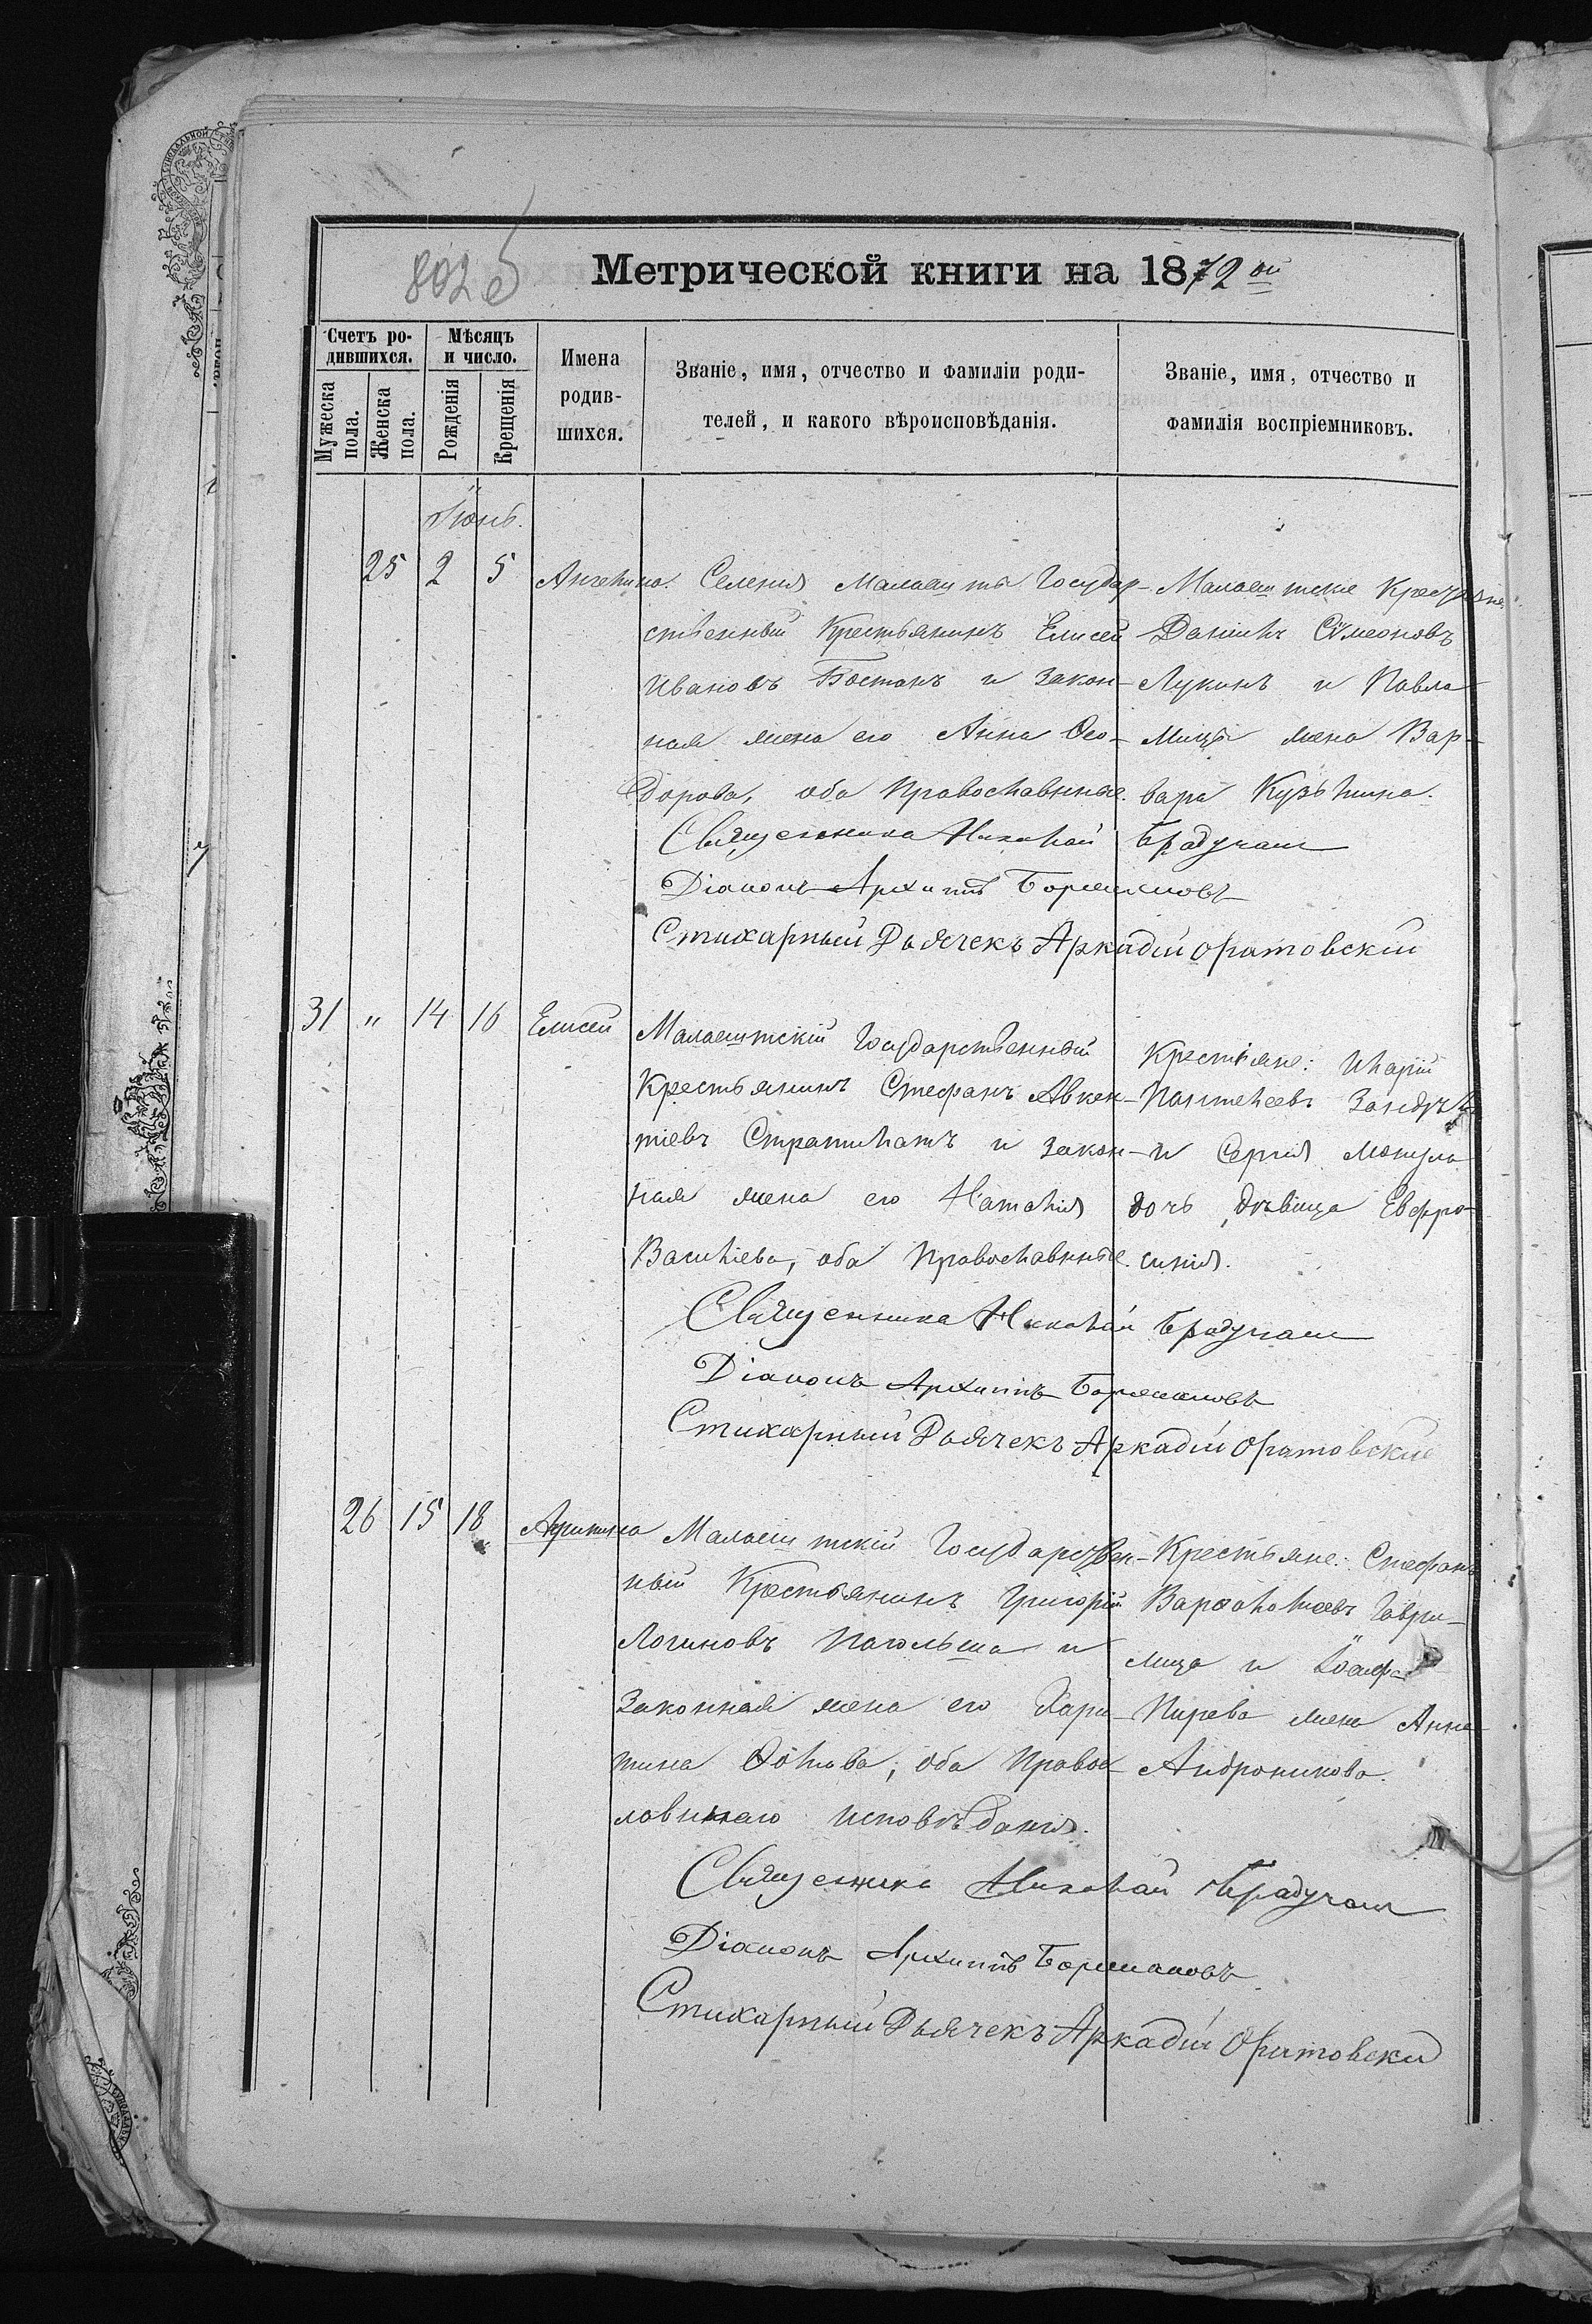 802 б
Метрической книги на 1872 ой
Счетъ ро-
дившихся.
Мѣсяцъ
и число.
Мужеска
пола.
Женска
пола.
Рожденія
Крещенія
Имена
родив-
шихся.
Званіе, имя, отчество и фамиліи роди-
телей, и какого вѣроисповѣданія.
Званіе, имя, отчество и
фамилія воспріемниковъ.
Іюнь.
25 2 5 Ангелина.
Селенія Малаешты Государ-
ственный Крестьянинъ Елисей
Ивановъ Бостанъ и закон-
ная жена его Анна Ѳео-
дорова, оба Православные.
Малаештскіе Крестьяне
Даніилъ Сѵмеоновъ
Лукинъ и Павла
жена Вар-
вара Кузьмина.
Священника Николай Брадучан
Діаконъ Архиппъ Боржаковъ
Стихарный Дьячекъ Аркадій Оратовскій
31 " 14 16 Елисей
Малаештскій Государственный
Крестьянинъ Стефанъ Авксен-
тіевъ Стратилатъ и закон-
ная жена его Наталія
Василіева, оба Православные.
Крестьяне: Иларій
Пантелеевъ
и Сергія
дочь, дѣвица Евфро-
синія.
Священника Николай Брадучан
Діаконъ Архиппъ Боржаковъ
Стихарный Дьячекъ Аркадій Оратовскій
26 15 18 Агрипина
Малаештскій Государствен-
ный Крестьянинъ Григорій
Логиновъ Пагольша и
Законная жена его Хари-
тина Ѳомова, оба Правос-
лавнаго исповѣданія.
Крестьяне: Стефанъ
Варѳоломеевъ Гаври-
лица и
Пирева жена Анна
Андроникова.
Священника Николай Брадучан
Діаконъ Архиппъ Боржаковъ
Стихарный Дьячекъ Аркадій Оратовскій